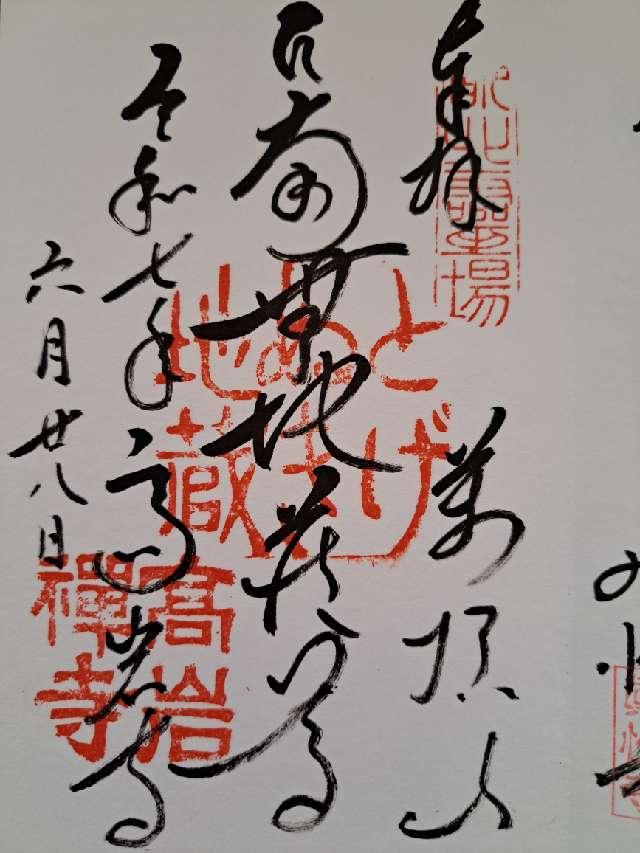 奉拝
萬頂山
南無地蔵尊
令和七年
六月廿八日
高岩寺
靈場
とげ
ぬき
地蔵
髙岩
禪寺